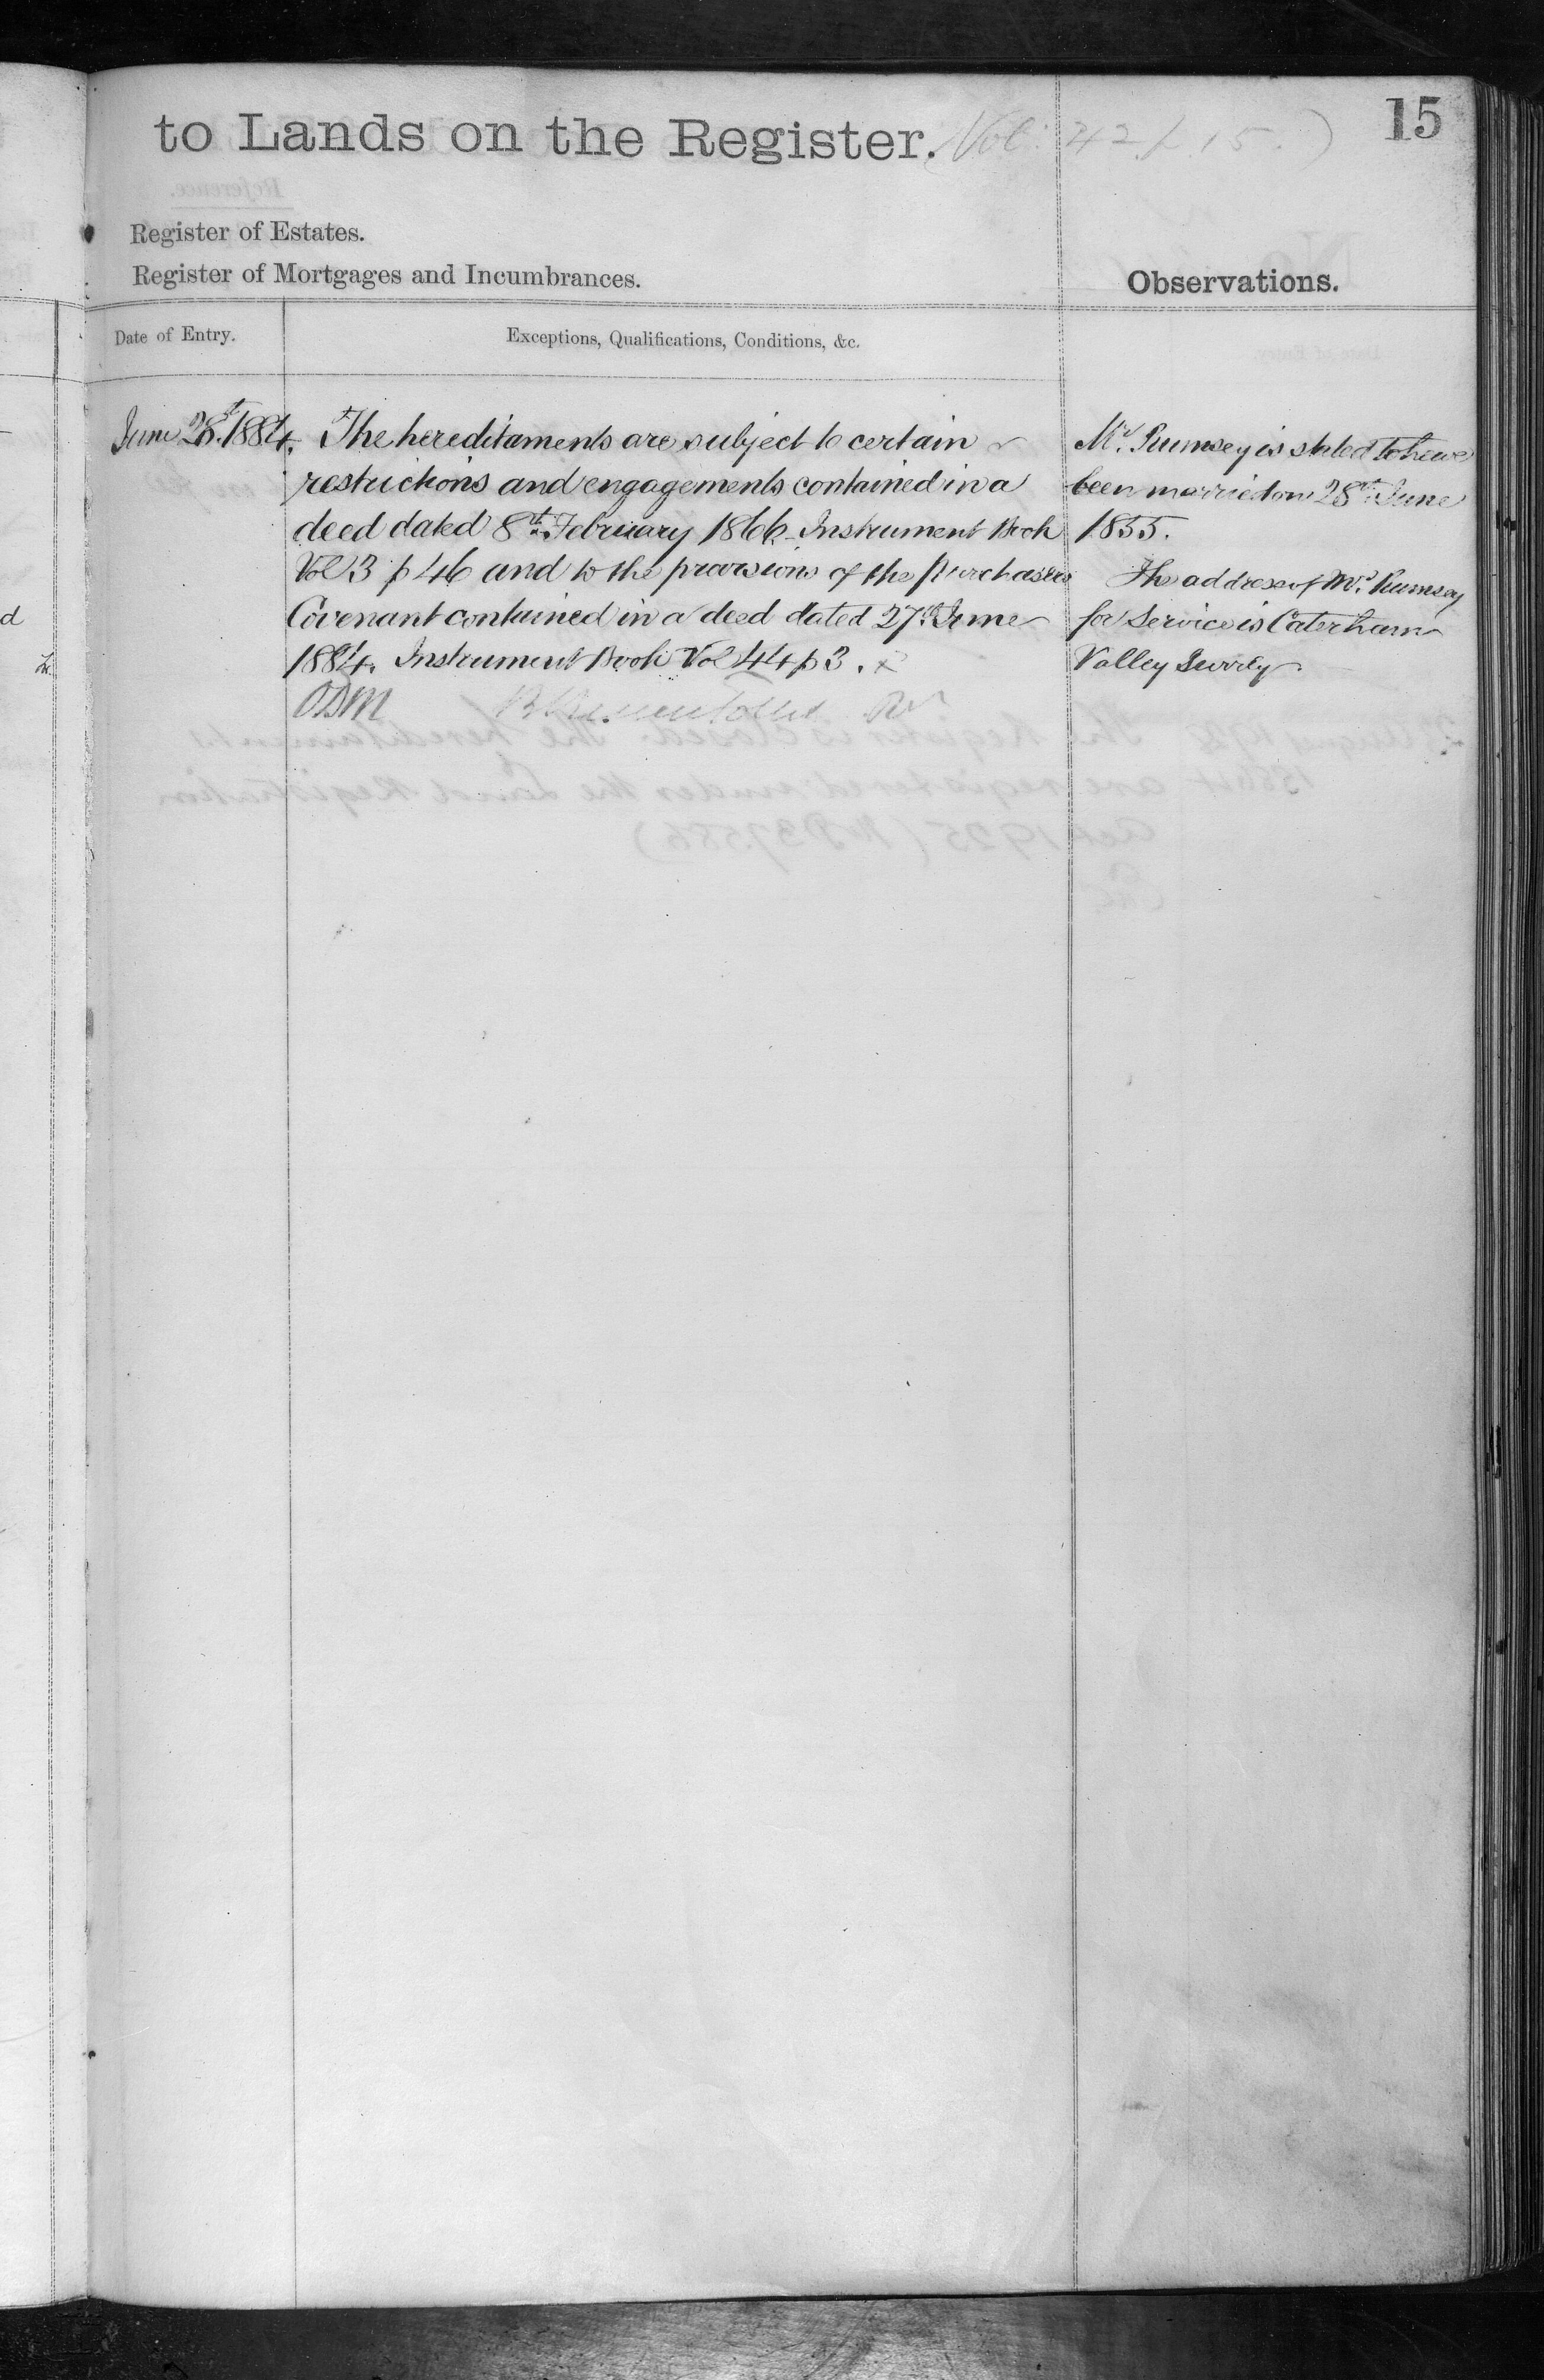 to Lands on the Register. (Vol. 42 p. 15.)
15
Register of Estates.
Register of Mortgages and Incumbrances.
Observations.
Date of Entry.
Exceptions, Qualifications, Conditions, &c.
June 28th. 1884.
The hereditaments are subject to certain
restrictions and engagements contained in a
deed dated 8th. February 1866 Instrument Book
Vol 3 p 46 and to the provisions of the Purchasers
Covenant contained in a deed dated 27th June
1884. Instrument Book Vol 44 p 3.
ODM
Mr. Rumsey is stated to have
been married on 28th. June
1855.
The address of Mr. Rumsey
for Service is Caterham
Valley Surrey